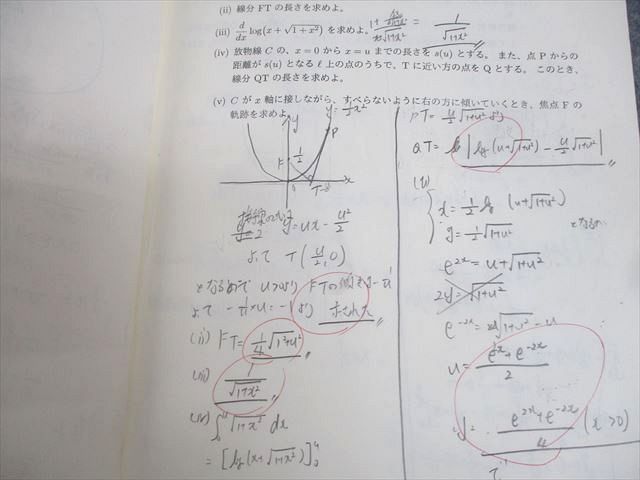 (ii) 線分 FT の長さを求めよ。
(iii) d/dx log(x + √1 + x²) を求めよ。
= 1/√1+x²
(iv) 放物線 C の、x = 0 から x = u までの長さを s(u) とする。また、点 P からの
距離が s(u) となる ℓ 上の点のうちで、T に近い方の点を Q とする。このとき、
線分 QT の長さを求めよ。
(v) C が x 軸に接しながら、すべらないように右の方に傾いていくとき、焦点 F の
軌跡を求めよ。
y=1/2x²
y
P
F
1/2
T
x
y=ux - u²/2
よって T(u/2, 0)
となるので u>0より FTの傾きは-1/u
よって -1/u×u=-1より 示された
(ii) FT=1/4√1+u²
(iii) 1/√1+x²
(iv) ∫₀ᵘ √1+x² dx
= [log(x+√1+x²)]₀ᵘ
PT=u/2√1+u² より
QT= |log(u+√1+u²) - u/2√1+u²|
(v)
x=1/2 log(u+√1+u²)
y=1/2√1+u²
となるので
e²ˣ=u+√1+u²
2y=√1+u²
e⁻²ˣ=√1+u²-u
u= e²ˣ+e⁻²ˣ/2
y= e²ˣ+e⁻²ˣ/4 (x>0)